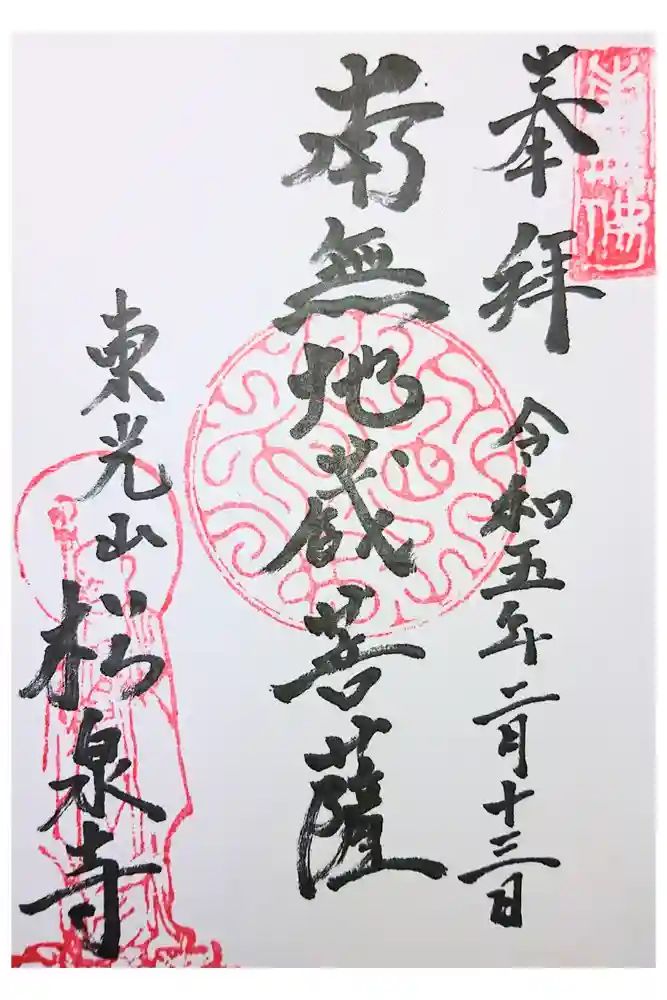 奉拝
令和五年二月十三日
南無地蔵菩薩
東光山
松泉寺